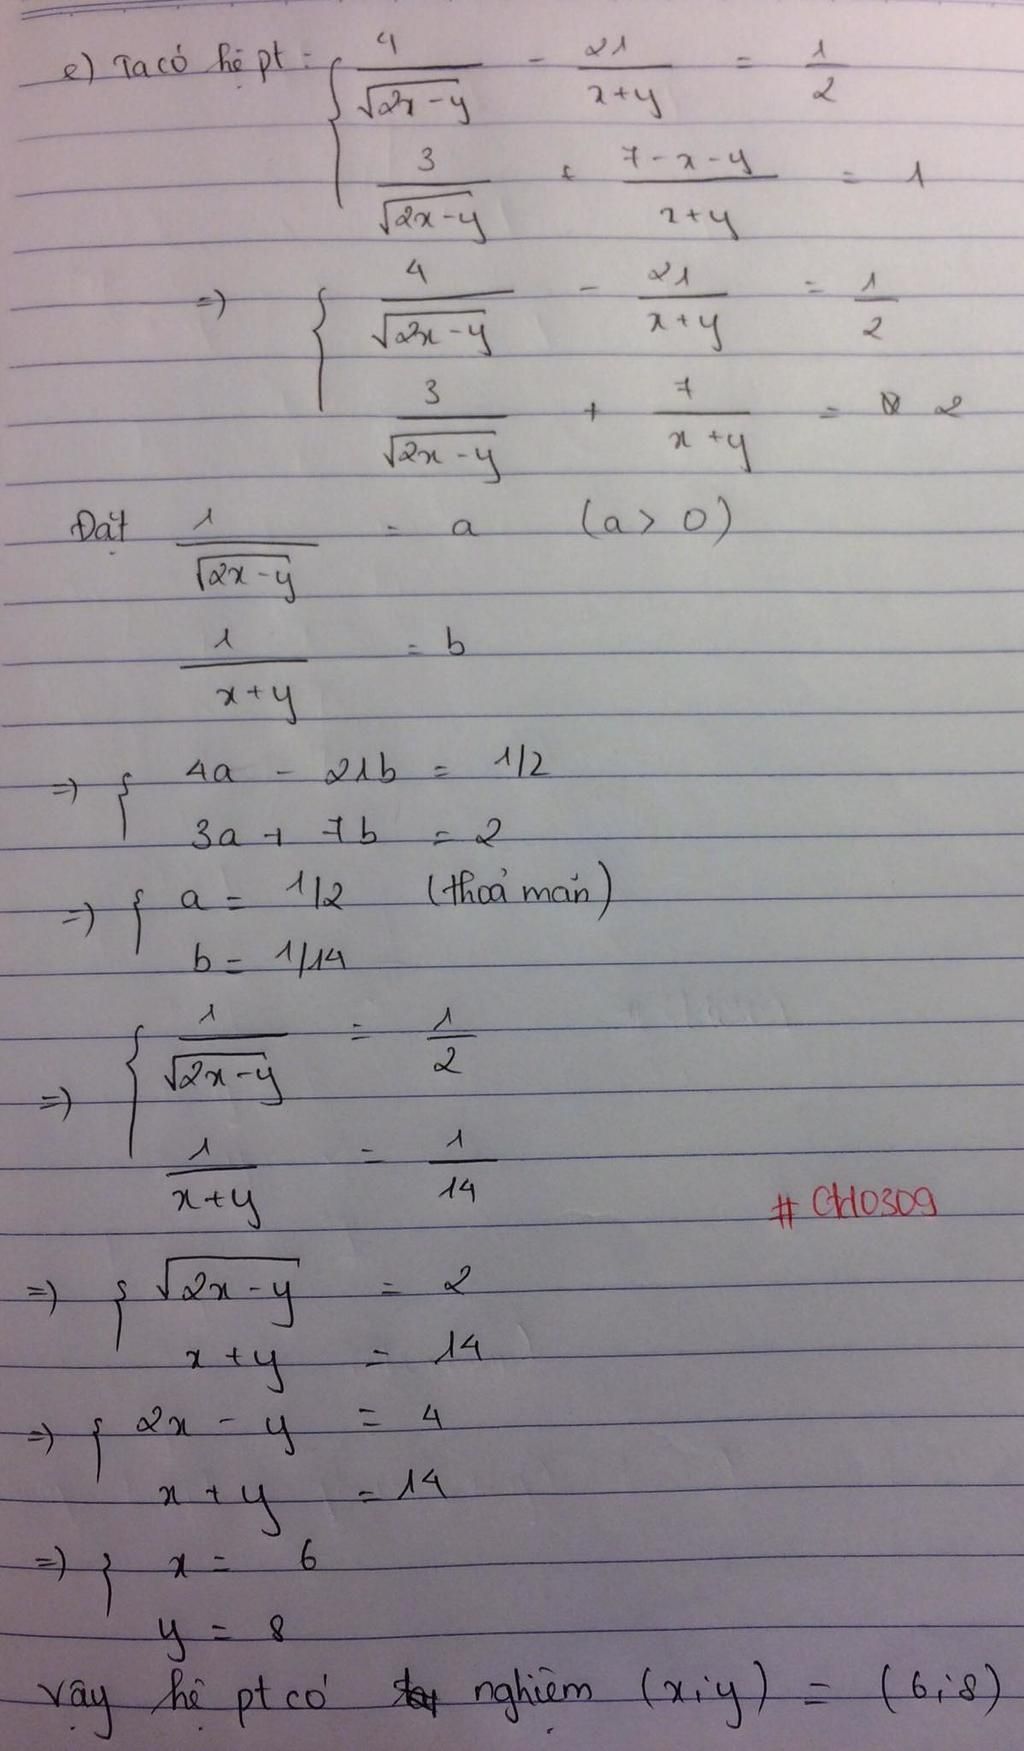 e) Ta có hệ pt: { 4/√(2x-y) - 21/(x+y) = 1/2
3/√(2x-y) + (7-x-y)/(x+y) = 1
=> { 4/√(2x-y) - 21/(x+y) = 1/2
3/√(2x-y) + 7/(x+y) = 2
Đặt 1/√(2x-y) = a (a > 0)
1/(x+y) = b
=> { 4a - 21b = 1/2
3a + 7b = 2
=> { a = 1/2 (thoả mãn)
b = 1/14
=> { 1/√(2x-y) = 1/2
1/(x+y) = 1/14
# CH0309
=> { √(2x-y) = 2
x+y = 14
=> { 2x - y = 4
x + y = 14
=> { x = 6
y = 8
Vậy hệ pt có nghiệm (x;y) = (6;8)